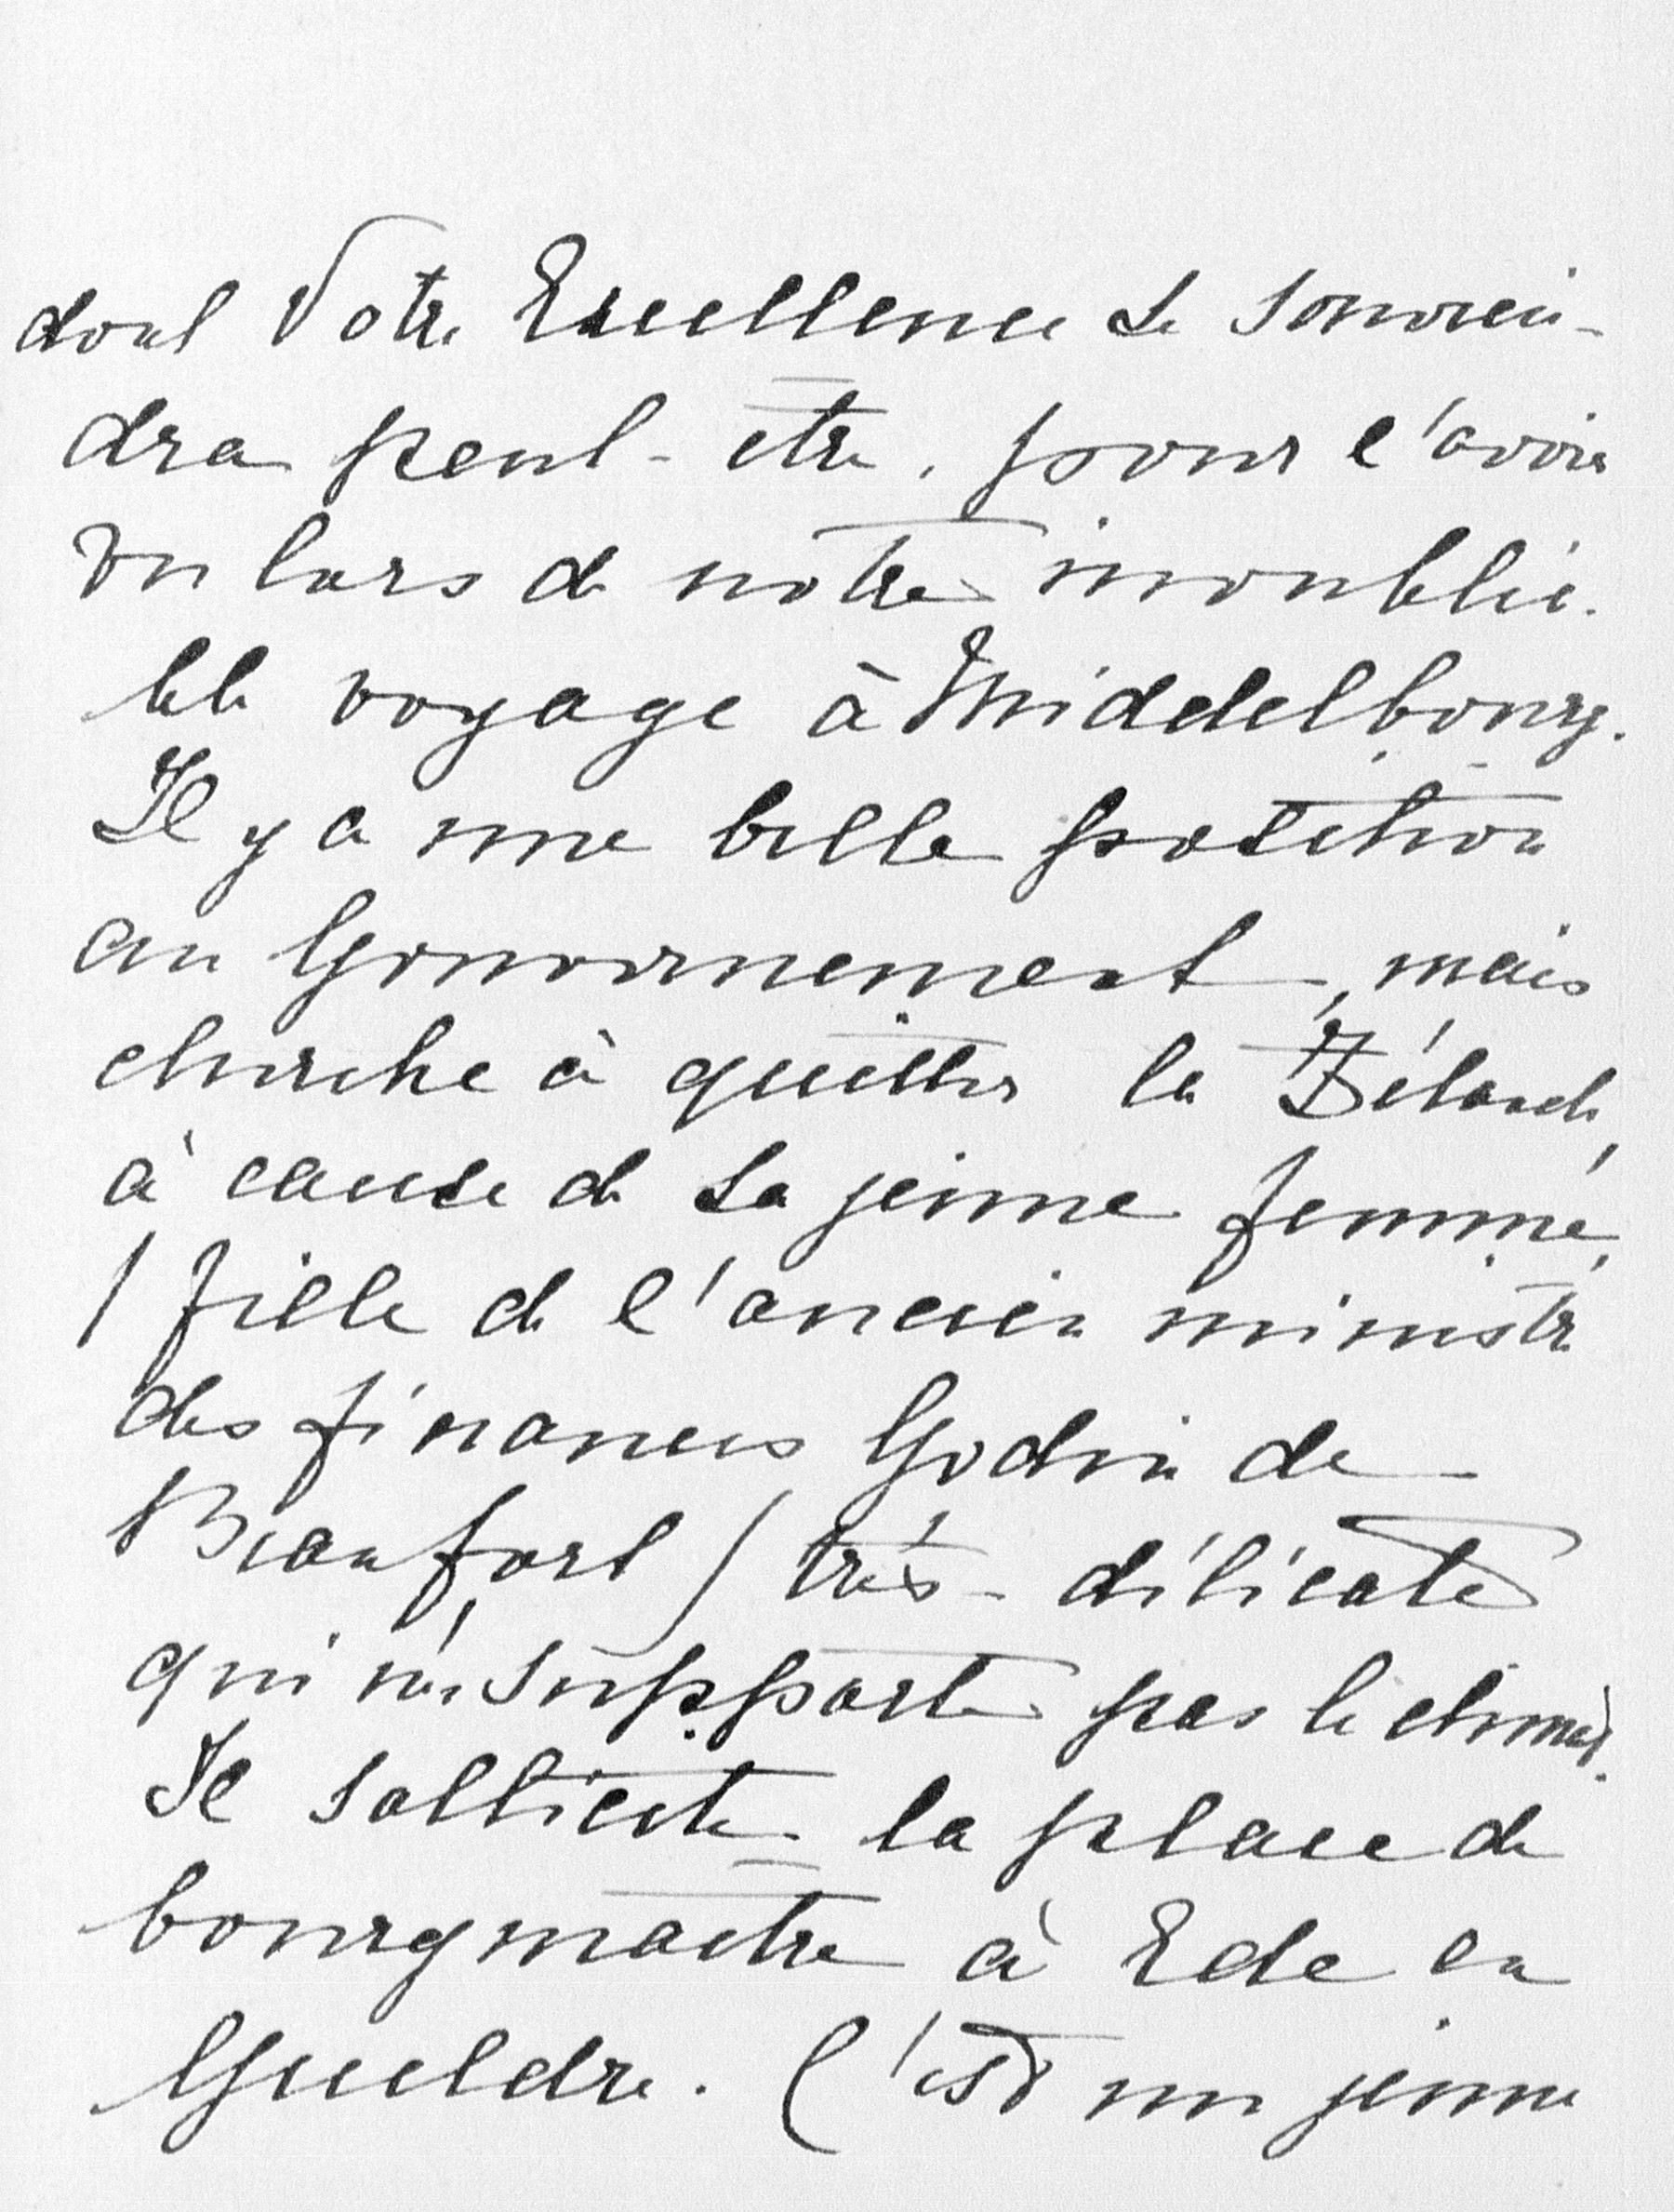 dont Votre Excellence se souvien-
dra peut-être, pour l'avoir
vu lors de notre inoublia-
ble voyage à Middelbourg.
Il y a une belle position
au Gouvernement, mais
cherche à quitter la Zélande,
à cause de sa jeune femme,
/ fille de l'ancien ministre
des finances Godin de
Beaufort / très-délicate
qui ne supporte pas le climat.
Il sollicite la place de
bourgmaître à Ede en
Gueldre. C'est un jeune